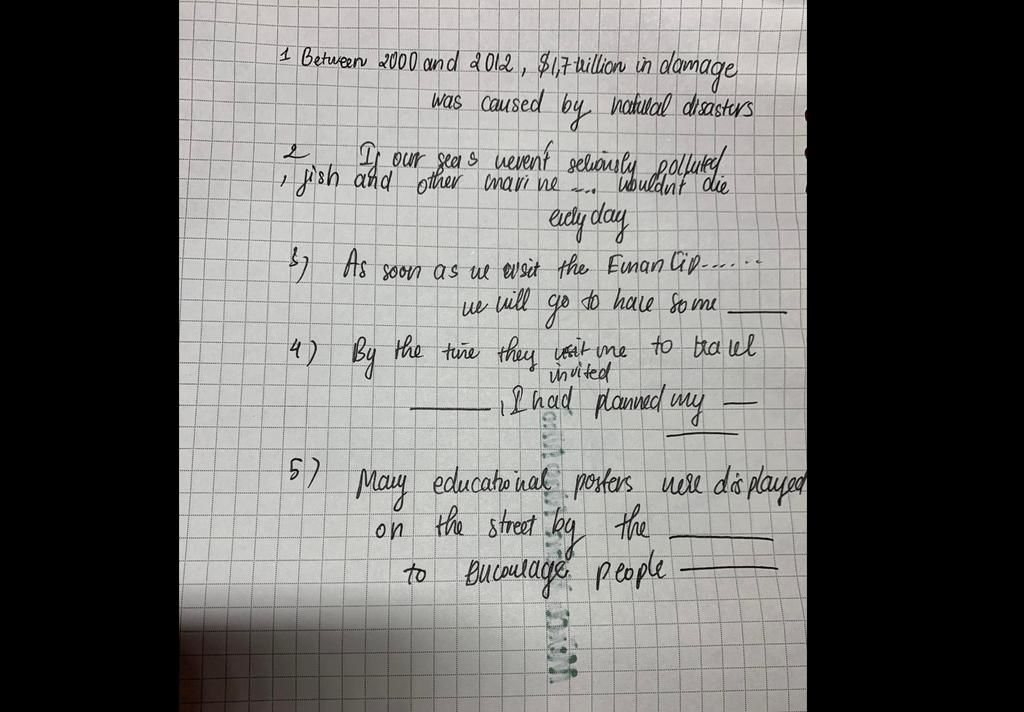 1 Between 2000 and 2012, $1,7 trillion in damage
was caused by natural disasters
2 If our seas weren't seriously polluted
, fish and other marine .... wouldn't die
every day
3) As soon as we visit the ......
we will go to have some ____
4) By the time they invited me to travel
____, I had planned my __
5) Many educational posters were displayed
on the street by the ____
to encourage people ____